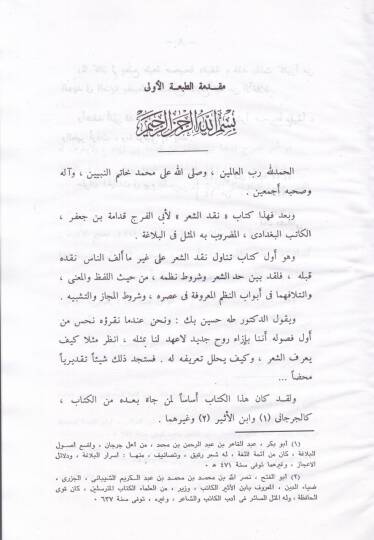 مقدمة الطبعة الأولى
بسم الله الرحمن الرحيم
الحمدلله رب العالمين ، وصلى الله على محمد خاتم النبيين ، وآله
وصحبه أجمعين .
وبعد فهذا كتاب « نقد الشعر » لأبى الفرج قدامة بن جعفر ،
الكاتب البغدادى ، المضروب به المثل فى البلاغة .
وهو أول كتاب تناول نقد الشعر على غير ما ألف الناس نقده
قبله ، فلقد بين حد الشعر وشروط نظمه ، من حيث اللفظ والمعنى ،
وائتلافهما فى أبواب النظم المعروفة فى عصره ، وشروط المجاز والتشبيه .
ويقول الدكتور طه حسين بك : ونحن عندما نقرؤه نحس من
أول فصوله أننا بإزاء روح جديد لاعهد لنا بمثله ، انظر مثلا كيف
يعرف الشعر ، وكيف يحلل تعريفه له . فستجد ذلك شيئاً تقديرياً
محضاً ...
ولقد كان هذا الكتاب أساساً لمن جاء بعده من الكتاب ،
كالجرجانى (١) وابن الأثير (٢) وغيرهما .
(١) أبو بكر ، عبد القاهر بن عبد الرحمن بن محمد ، من أهل جرجان ، واضع أصول
البلاغة ، كان من أئمة اللغة ، له شعر رقيق ، وتصانيف ، منها : أسرار البلاغة ، ودلائل
الاعجاز ، وغيرهما توفى سنة ٤٧١ هـ .
(٢) أبو الفتح ، نصر الله بن محمد بن محمد بن عبد الكريم الشيبانى ، الجزرى ،
ضياء الدين ، المعروف بابن الأثير الكاتب ، وزير ، من العلماء الكتاب المترسلين ، كان قوى
الحافظة ، وله المثل السائر فى أدب الكاتب والشاعر ، وغيره ، توفى سنة ٦٣٧ هـ